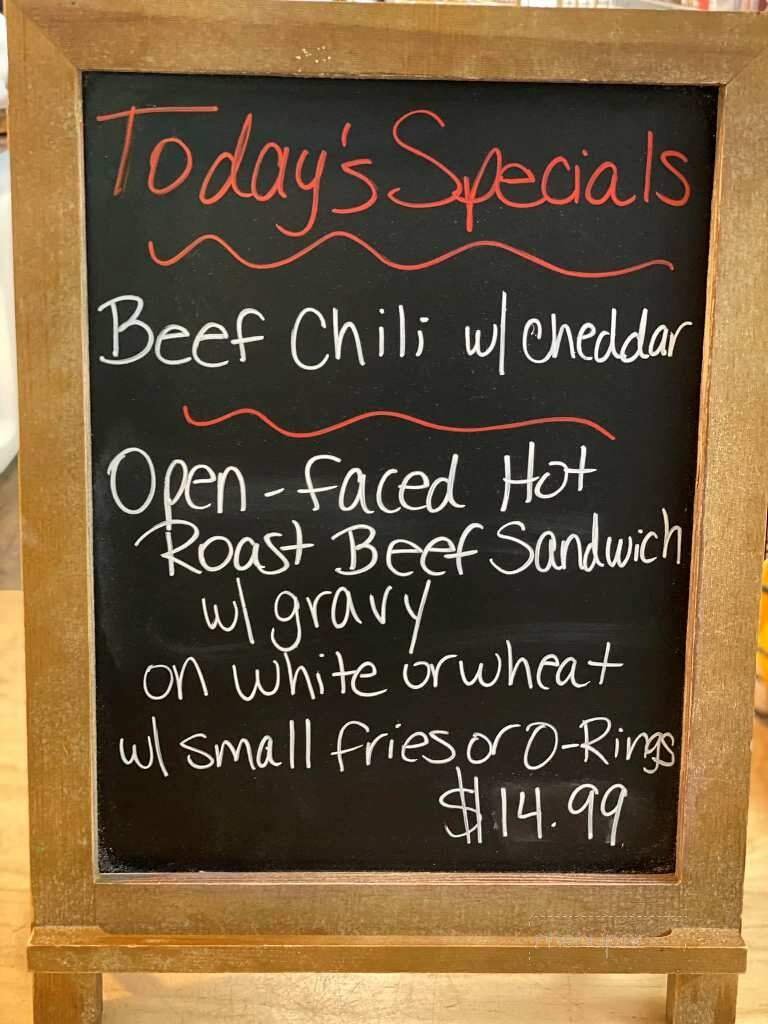 Today's Specials
Beef Chili w/ cheddar
Open-faced Hot
Roast Beef Sandwich
w/ gravy
on white or wheat
w/ small fries or O-Rings
$14.99